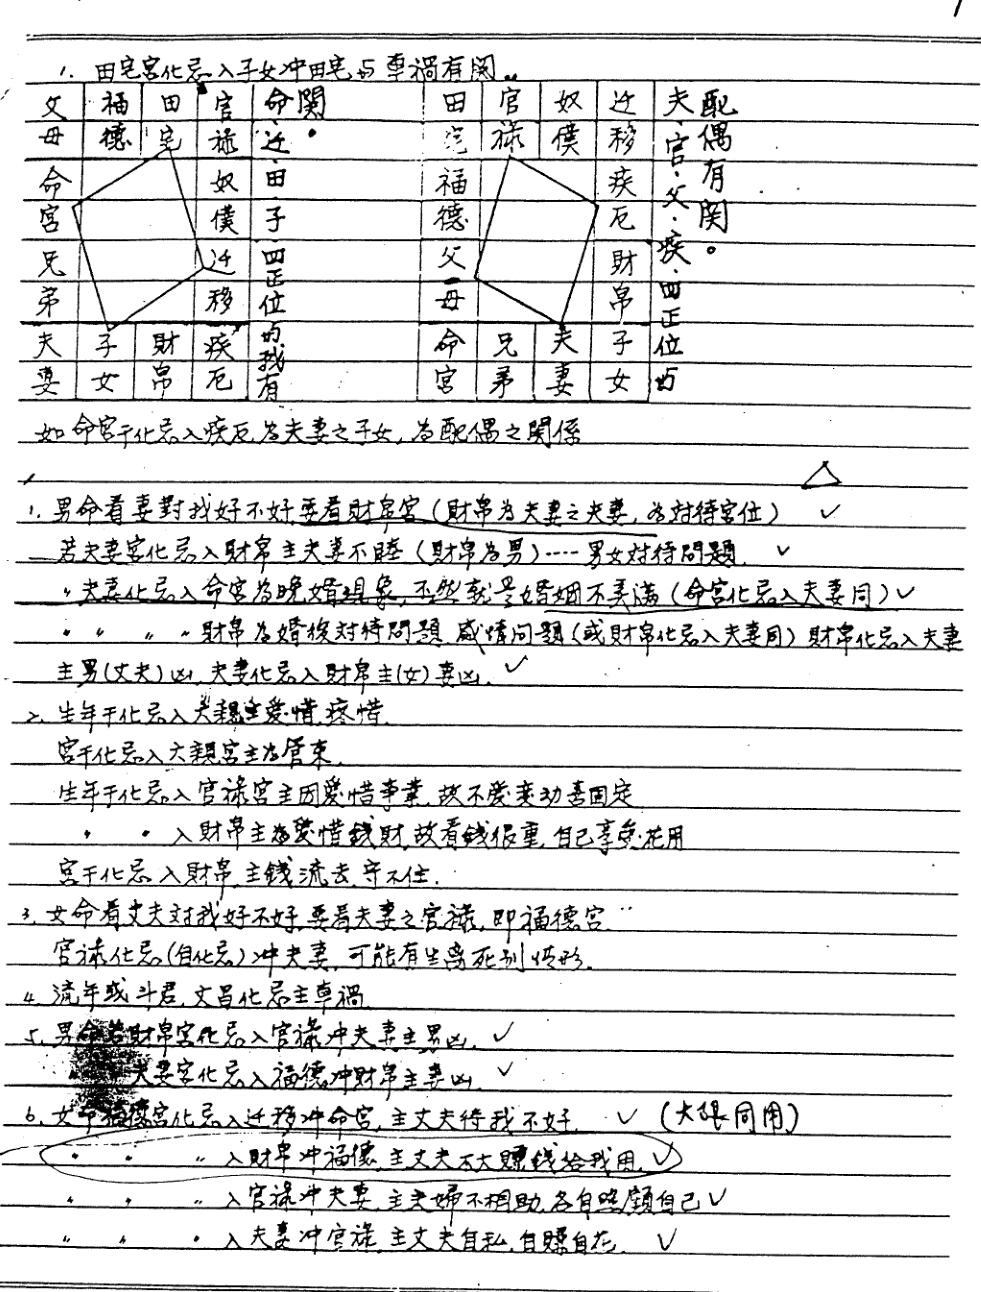 1. 田宅宮化忌入子女冲田宅,与車禍有関。
父母 福德 田宅 官祿
命宮 奴僕
兄弟 迁移
夫妻 子女 財帛 疾厄
命、迁、田、子、四正位的我有関。
田宅 官祿 奴僕 迁移
福德 疾厄
父母 財帛
命宮 兄弟 夫妻 子女
夫、官、父、疾、四正位与配偶有関。
如命宮干化忌入疾厄,為夫妻之子女,為配偶之関係
1. 男命看妻對我好不好,要看財帛宮(財帛為夫妻之夫妻,為対待宮位) ✓
若夫妻宮化忌入財帛主夫妻不睦(財帛為男)----男女対待問題. ✓
〃夫妻化忌入命宮為晚婚現象,不然就是婚姻不美滿(命宮化忌入夫妻同)✓
〃 〃 〃 〃財帛為婚後対待問題,感情问題(或財帛化忌入夫妻同)財帛化忌入夫妻
主男(丈夫)凶,夫妻化忌入財帛主(女)妻凶. ✓
2. 生年干化忌入六親主愛惜,疼惜.
宮干化忌入六親宮主為管束.
生年干化忌入官祿宮主因愛惜事業,故不愛変动喜固定
〃 〃 入財帛主為愛惜錢財,故看錢很重,自己享受花用
宮干化忌入財帛,主錢流去,守不住.
3. 女命看丈夫対我好不好,要看夫妻之官祿,即福德宮.
官祿化忌(自化忌)冲夫妻,可能有生离死別情形.
4. 流年或斗君,文昌化忌主車禍.
5. 男命若財帛宮化忌入官祿冲夫妻主男凶. ✓
夫妻宮化忌入福德冲財帛主妻凶. ✓
6. 女命福德宮化忌入迁移冲命宮,主丈夫待我不好. ✓ (大限同用)
〃 〃 〃 入財帛冲福德,主丈夫不大賺錢給我用.✓
〃 〃 〃 入官祿冲夫妻,主夫婦不相助,各自照顧自己✓
〃 〃 〃 入夫妻冲官祿,主丈夫自私,自賺自花. ✓